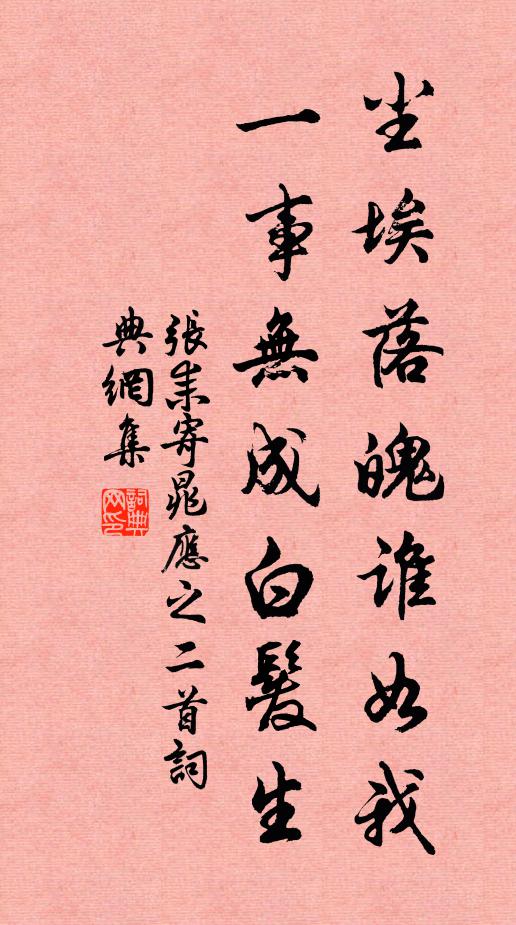 尘埃落魄谁如我
一事無成白髮生
張耒寄晁應之二首詞
典網集
詞典網印